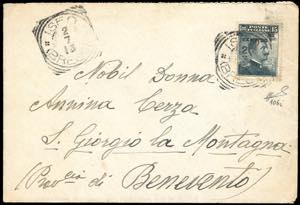 ISEO
2
7
13
POSTE ITALIANE
15
Nobil Donna
Annina Cerza
S. Giorgio la Montagna
(Prov.cia di Benevento)